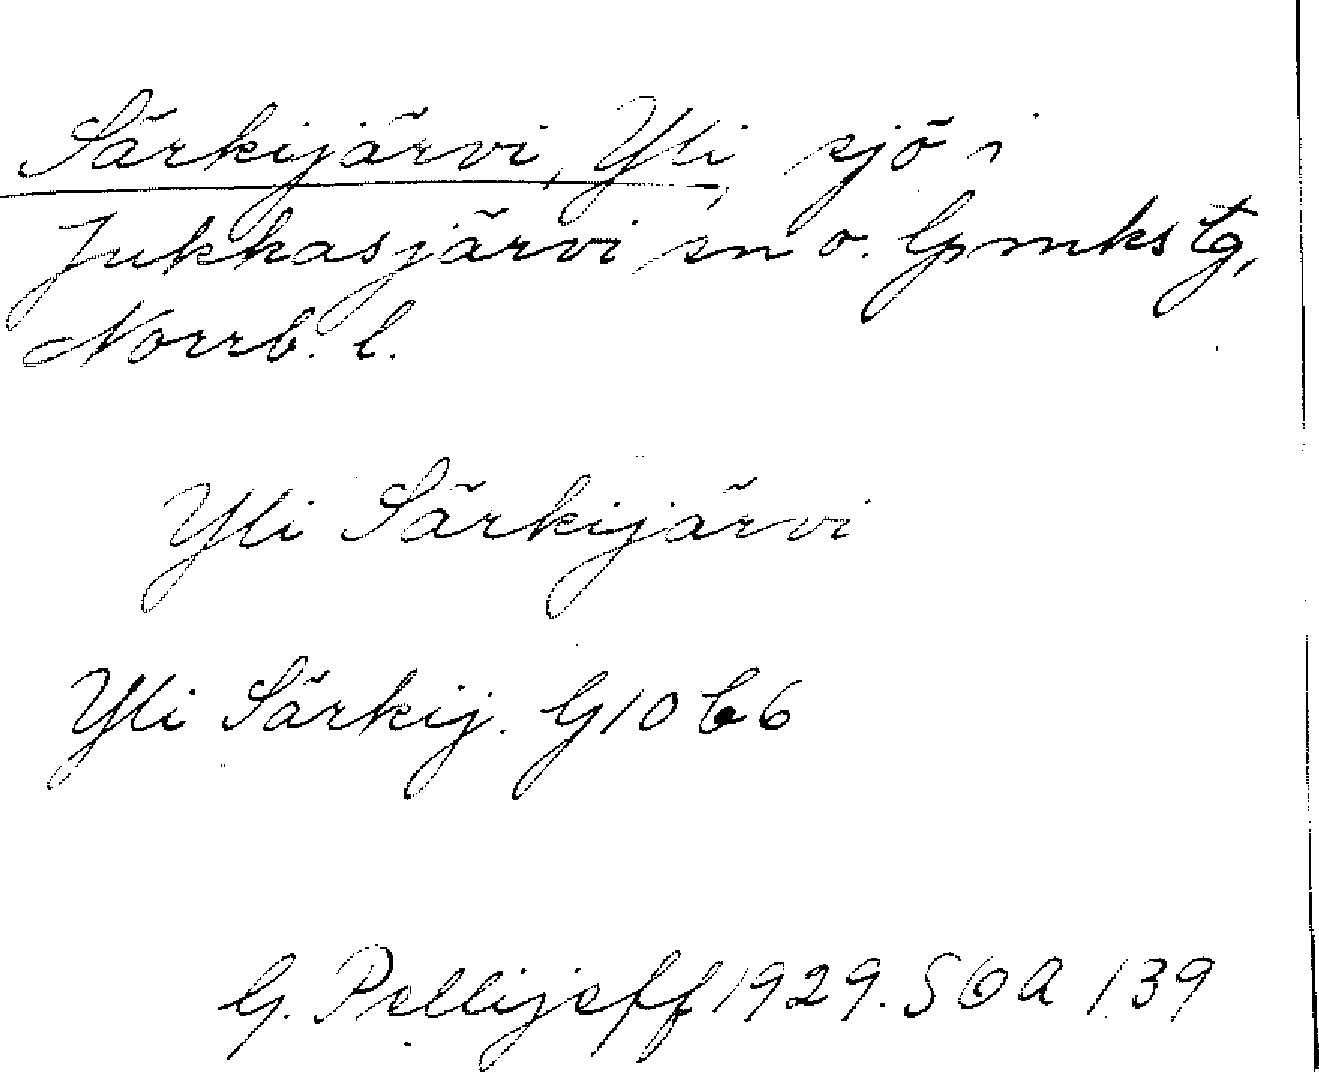 Särkijärvi, Yli, sjö i
Jukkasjärvi sn o. Gpmkstg,
Norrb. l.
Yli Särkijärvi
Yli Särkij. G10 b6
G. Pellijeff 1929. SOA 139